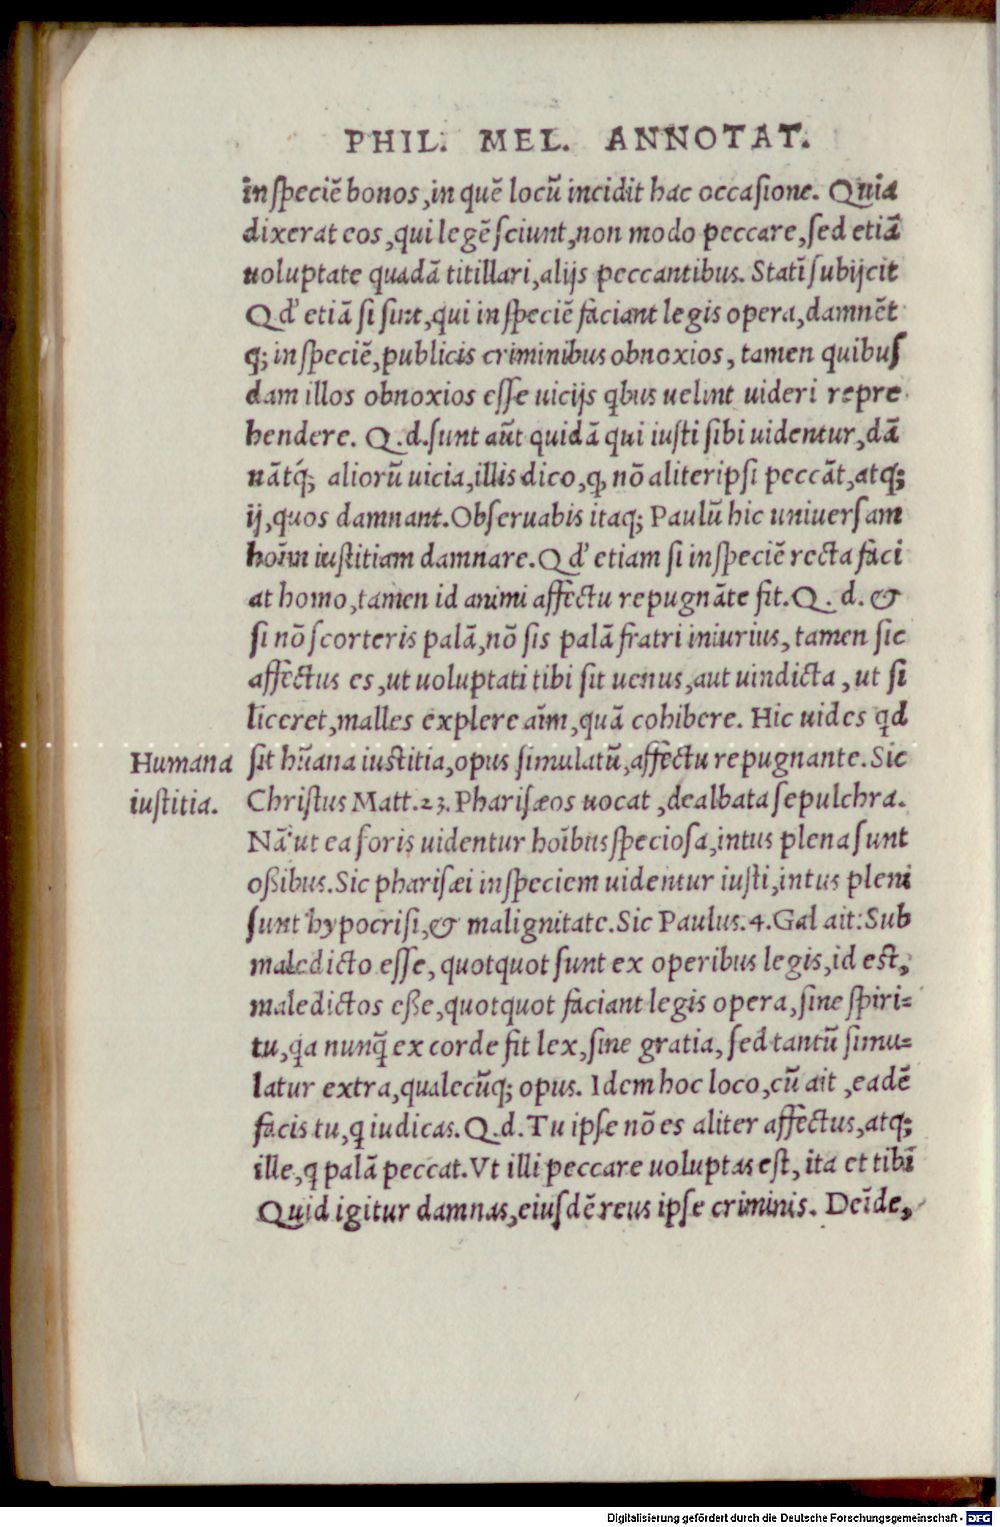 PHIL. MEL. ANNOTAT.
in speciẽ bonos, in quẽ locũ incidit hac occasione. Quia
dixerat eos, qui legẽ sciunt, non modo peccare, sed etiã
uoluptate quadã titillari, alijs peccantibus. Statĩ subijcit
Qd' etiã si sint, qui in speciẽ faciant legis opera, damnẽt
q; in speciẽ, publicis criminibus obnoxios, tamen quibus
dam illos obnoxios esse uicijs qbus uelint uideri repre
hendere. Q.d. sunt aũt quidã qui iusti sibi uidentur, dã
nãtq́; aliorũ uicia, illis dico, ꝙ nõ aliter ipsi peccãt, atq;
ij, quos damnant. Obseruabis itaq; Paulũ hic uniuersam
hoĩm iustitiam damnare. Qd' etiam si in speciẽ recta faci
at homo, tamen id animi affectu repugnãte fit. Q. d. &
si nõ scorteris palã, nõ sis palã fratri iniurius, tamen sic
affectus es, ut uoluptati tibi sit uenus, aut uindicta, ut si
liceret, malles explere aĩm, quã cohibere. Hic uides qd
Humana
iustitia.
sit hũana iustitia, opus simulatũ, affectu repugnante. Sic
Christus Matt. 23. Pharisæos uocat, dealbata sepulchra.
Nã ut ea foris uidentur hoĩbus speciosa, intus plena sunt
oßibus. Sic pharisæi in speciem uidentur iusti, intus pleni
sunt hypocrisi, & malignitate. Sic Paulus. 4. Gal ait: Sub
maledicto esse, quotquot sunt ex operibus legis, id est,
maledictos eße, quotquot faciant legis opera, sine spiri-
tu, qa nunq̃ ex corde fit lex, sine gratia, sed tantũ simu-
latur extra, qualecũq; opus. Idem hoc loco, cũ ait, eadẽ
facis tu, q iudicas. Q.d. Tu ipse nõ es aliter affectus, atq;
ille, q palã peccat. Vt illi peccare uoluptas est, ita et tibi
Quid igitur damnas, eiusdẽ reus ipse criminis. Deĩde,
Digitalisierung gefördert durch die Deutsche Forschungsgemeinschaft - DFG